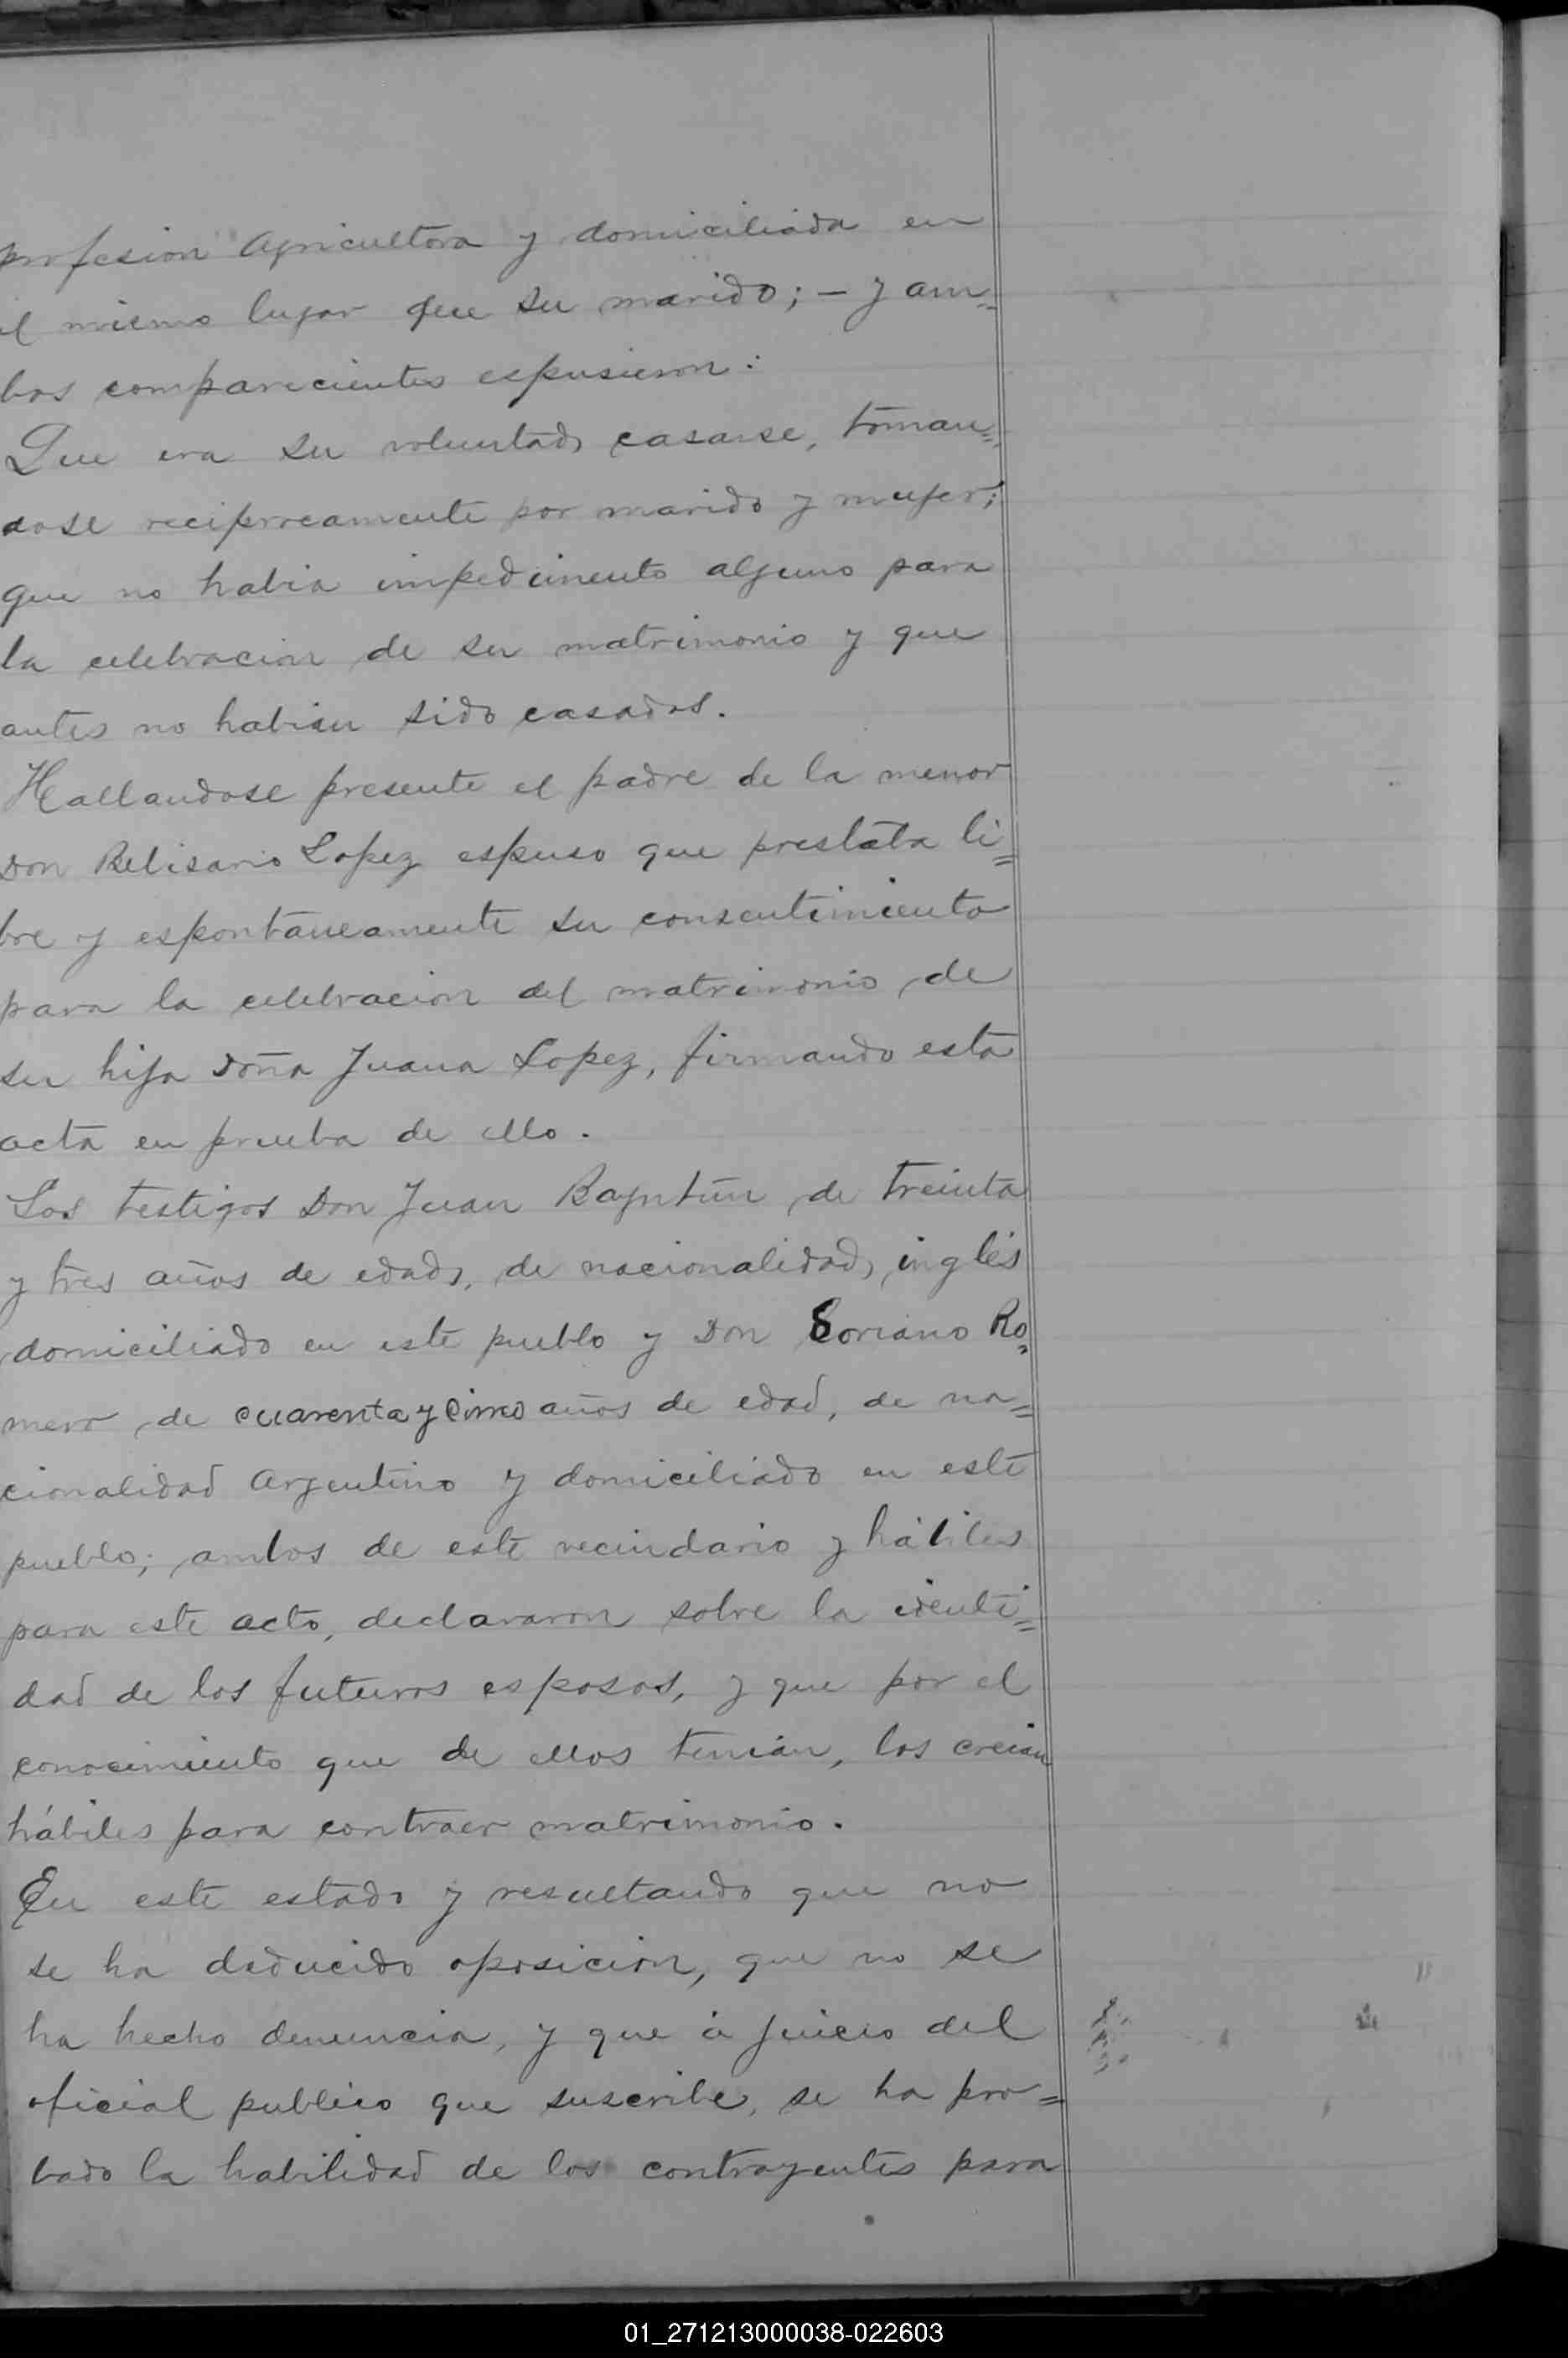 profesion Agricultora y domiciliada en
el mismo lugar que su marido; — y am=
bos comparecientes espusieron:
Que era su voluntad casarse, toman=
dose reciprocamente por marido y mujer;
que no habia impedimento alguno para
la celebracion de su matrimonio y que
antes no habian sido casados.
Hallandose presente el padre de la menor
Don Belisario Lopez espuso que prestaba li=
bre y espontaneamente su consentimiento
para la celebracion del matrimonio de
su hija doña Juana Lopez, firmando esta
acta en prueba de ello.
Los testigos Don Juan Bayntun de treinta
y tres años de edad, de nacionalidad, inglés
domiciliado en este pueblo y Don Soriano Ro=
mero de cuarenta y cinco años de edad, de na=
cionalidad Argentino y domiciliado en este
pueblo; ambos de este vecindario y hábiles
para este acto, declararon sobre la identi=
dad de los futuros esposos, y que por el
conocimiento que de ellos tenian, los creian
hábiles para contraer matrimonio.
En este estado y resultando que no
se ha deducido oposicion, que no se
ha hecho denuncia, y que á juicio del
oficial publico que suscribe, se ha pro=
bado la habilidad de los contrayentes para
01_271213000038-022603